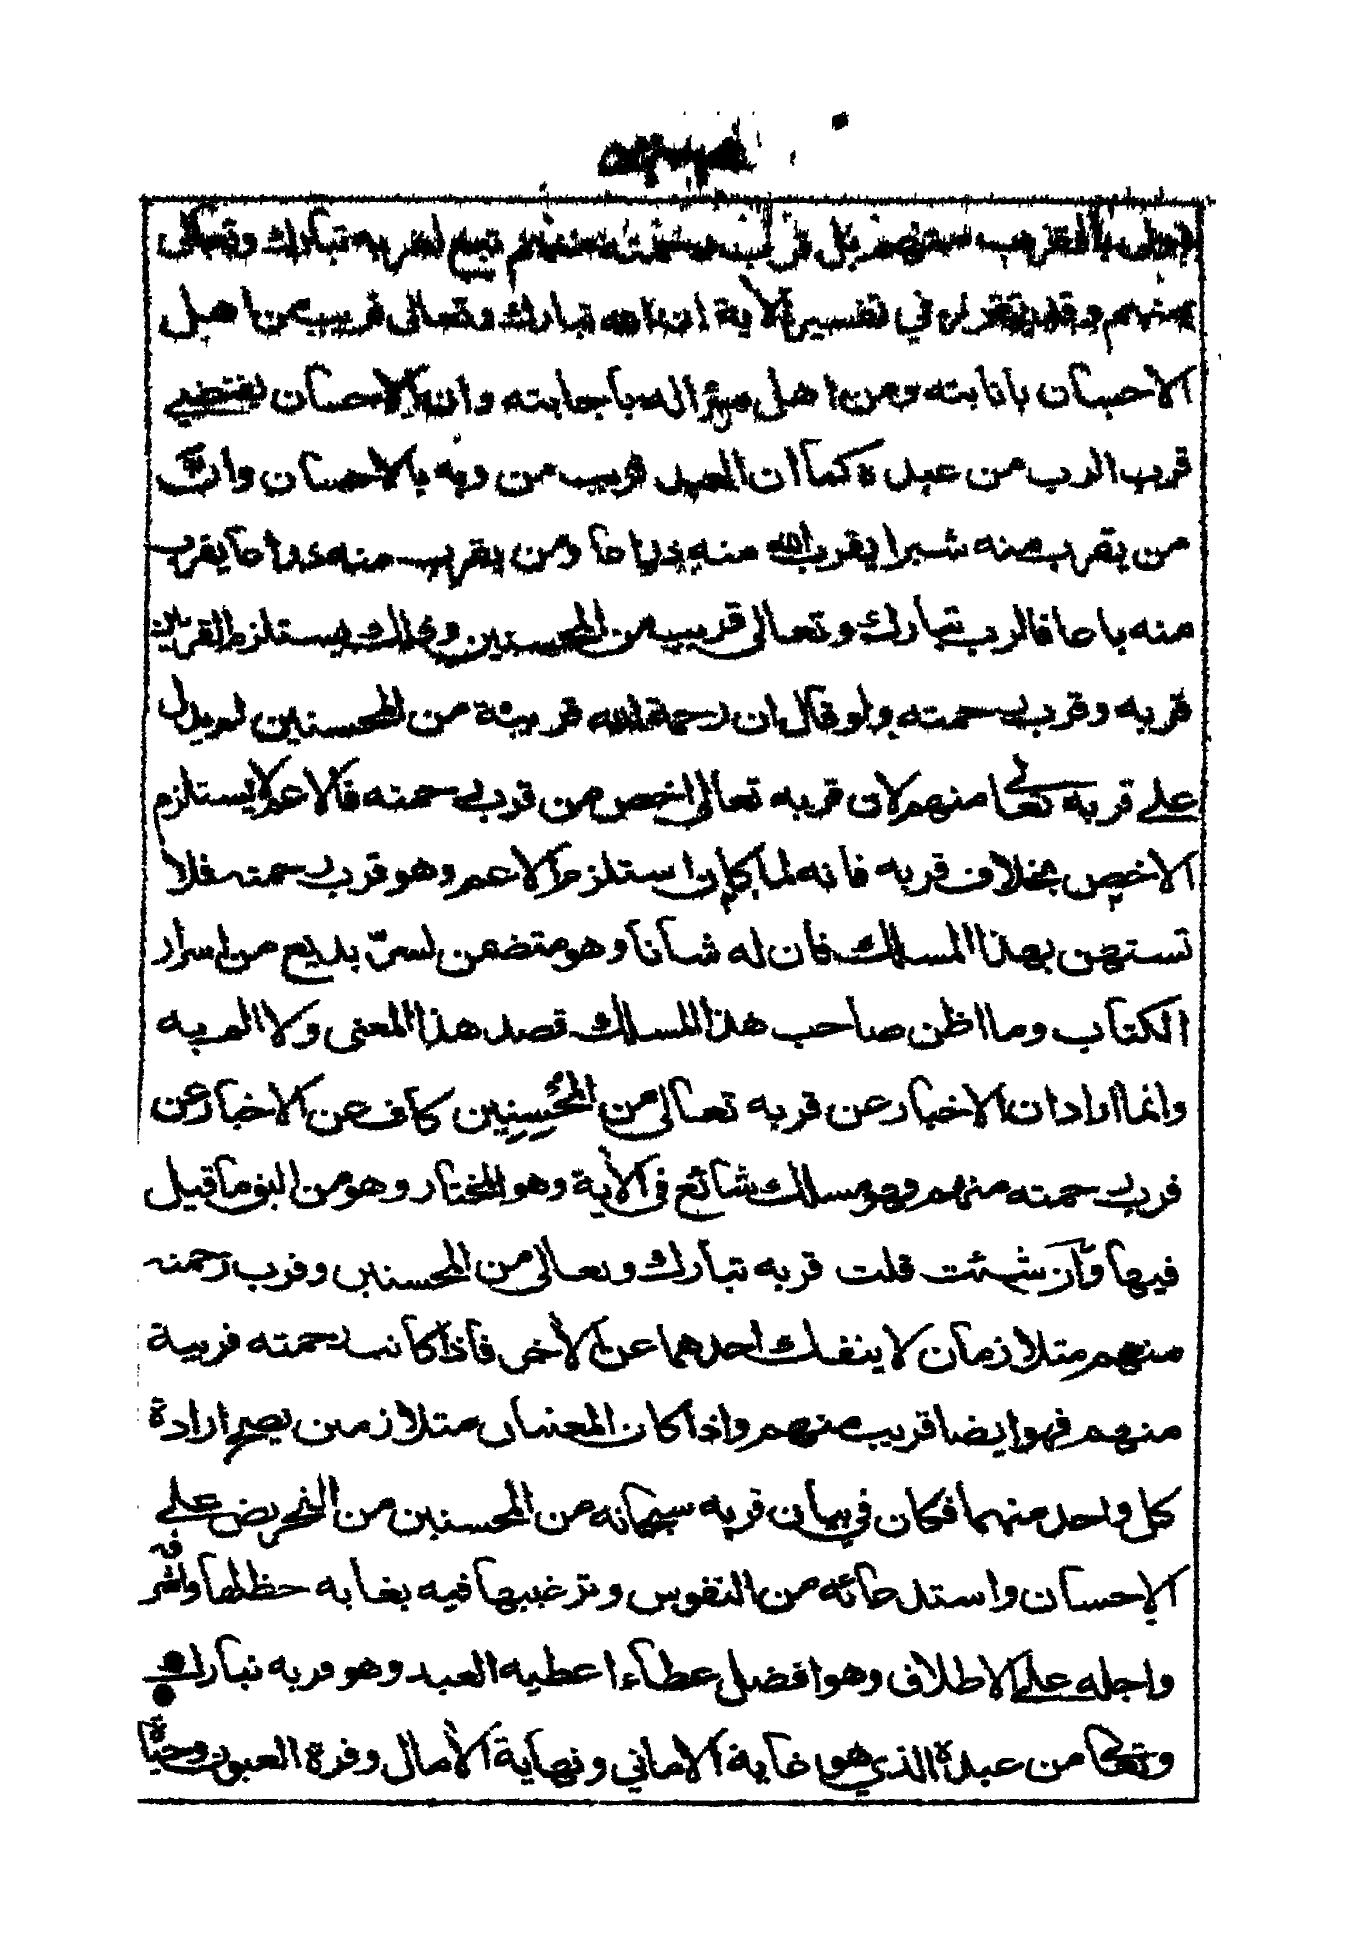 بالقرب منهم بل قرب رحمته منهم تبع لقربه تبارك وتعالى
منهم وقد تقرر في تفسير الآية ان الله تبارك وتعالى قريب من اهل
الاحسان باثابته ومن اهل سؤاله باجابته وان الاحسان يقتضي
قرب الرب من عبده كما ان العبد قريب من ربه بالاحسان وان
من يقرب منه شبرا يقرب الله منه ذراعا ومن يقرب منه ذراعا يقرب
منه باعا فالرب تبارك وتعالى قريب من المحسنين وذلك يستلزم القربين
قربه وقرب رحمته ولو قال ان رحمة الله قريبة من المحسنين لم يدل
على قربه تعالى منهم لان قربه تعالى اخص من قرب رحمته فالاعم لا يستلزم
الاخص بخلاف قربه فانه لما كان استلزم الاعم وهو قرب رحمته فلا
تستهن بهذا المسلك فان له شانا وهو متضمن لسر بديع من اسرار
الكتاب وما اظن صاحب هذا المسلك قصد هذا المعنى ولا الم به
وانما اراد ان الاخبار عن قربه تعالى من المحسنين كاف عن الاخبار عن
قرب رحمته منهم وهو مسلك شائع في الآية وهو المختار وهو من اليق ما قيل
فيها وان شئت قلت قربه تبارك وتعالى من المحسنين وقرب رحمته
منهم متلازمان لا ينفك احدهما عن الأخر فاذا كانت رحمته قريبة
منهم فهو ايضا قريب منهم واذا كان المعنيان متلازمين يصح ارادة
كل واحد منهما فكان في بيان قربه سبحانه من المحسنين من التحريض على
الاحسان واستدعائه من النفوس وترغيبها فيه بغاية حظ لها واشرفه
واجله على الاطلاق وهو افضل عطاء اعطيه العبد وهو قربه تبارك
وتعالى من عبده الذي هو غاية الاماني ونهاية الأمال وقرة العيون وحيوة